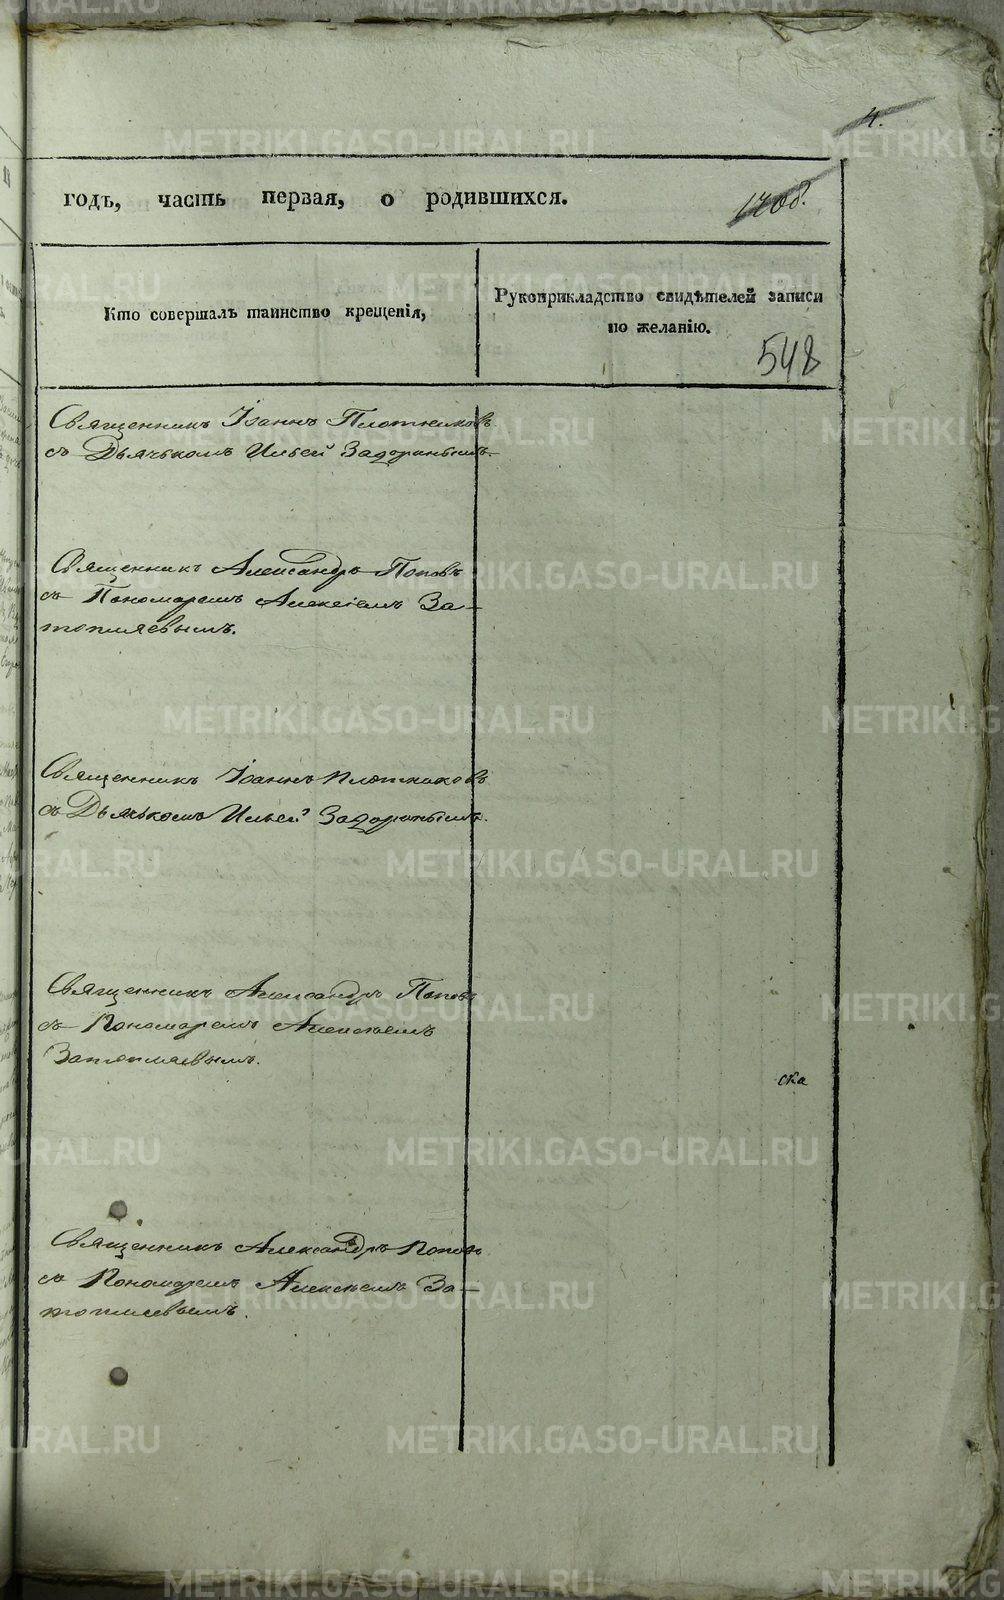 4.
годъ, часть первая, о родившихся.
1208.
Кто совершалъ таинство крещенія,
Рукоприкладство свидѣтелей записи
по желанію.
548
Священникъ Іоаннъ Плотниковъ
съ Дьячькомъ Ильей Задоринымъ.
Священникъ Александръ Поповъ
съ Пономаремъ Алексіемъ За-
топляевымъ.
Священникъ Іоаннъ Плотниковъ
съ Дьячькомъ Ильей Задоринымъ.
Священникъ Александръ Поповъ
съ Пономаремъ Алексѣемъ
Затопляевымъ.
ска
Священникъ Александръ Поповъ
съ Пономаремъ Алексѣемъ За-
топляевымъ.
METRIKI.GASO-URAL.RU